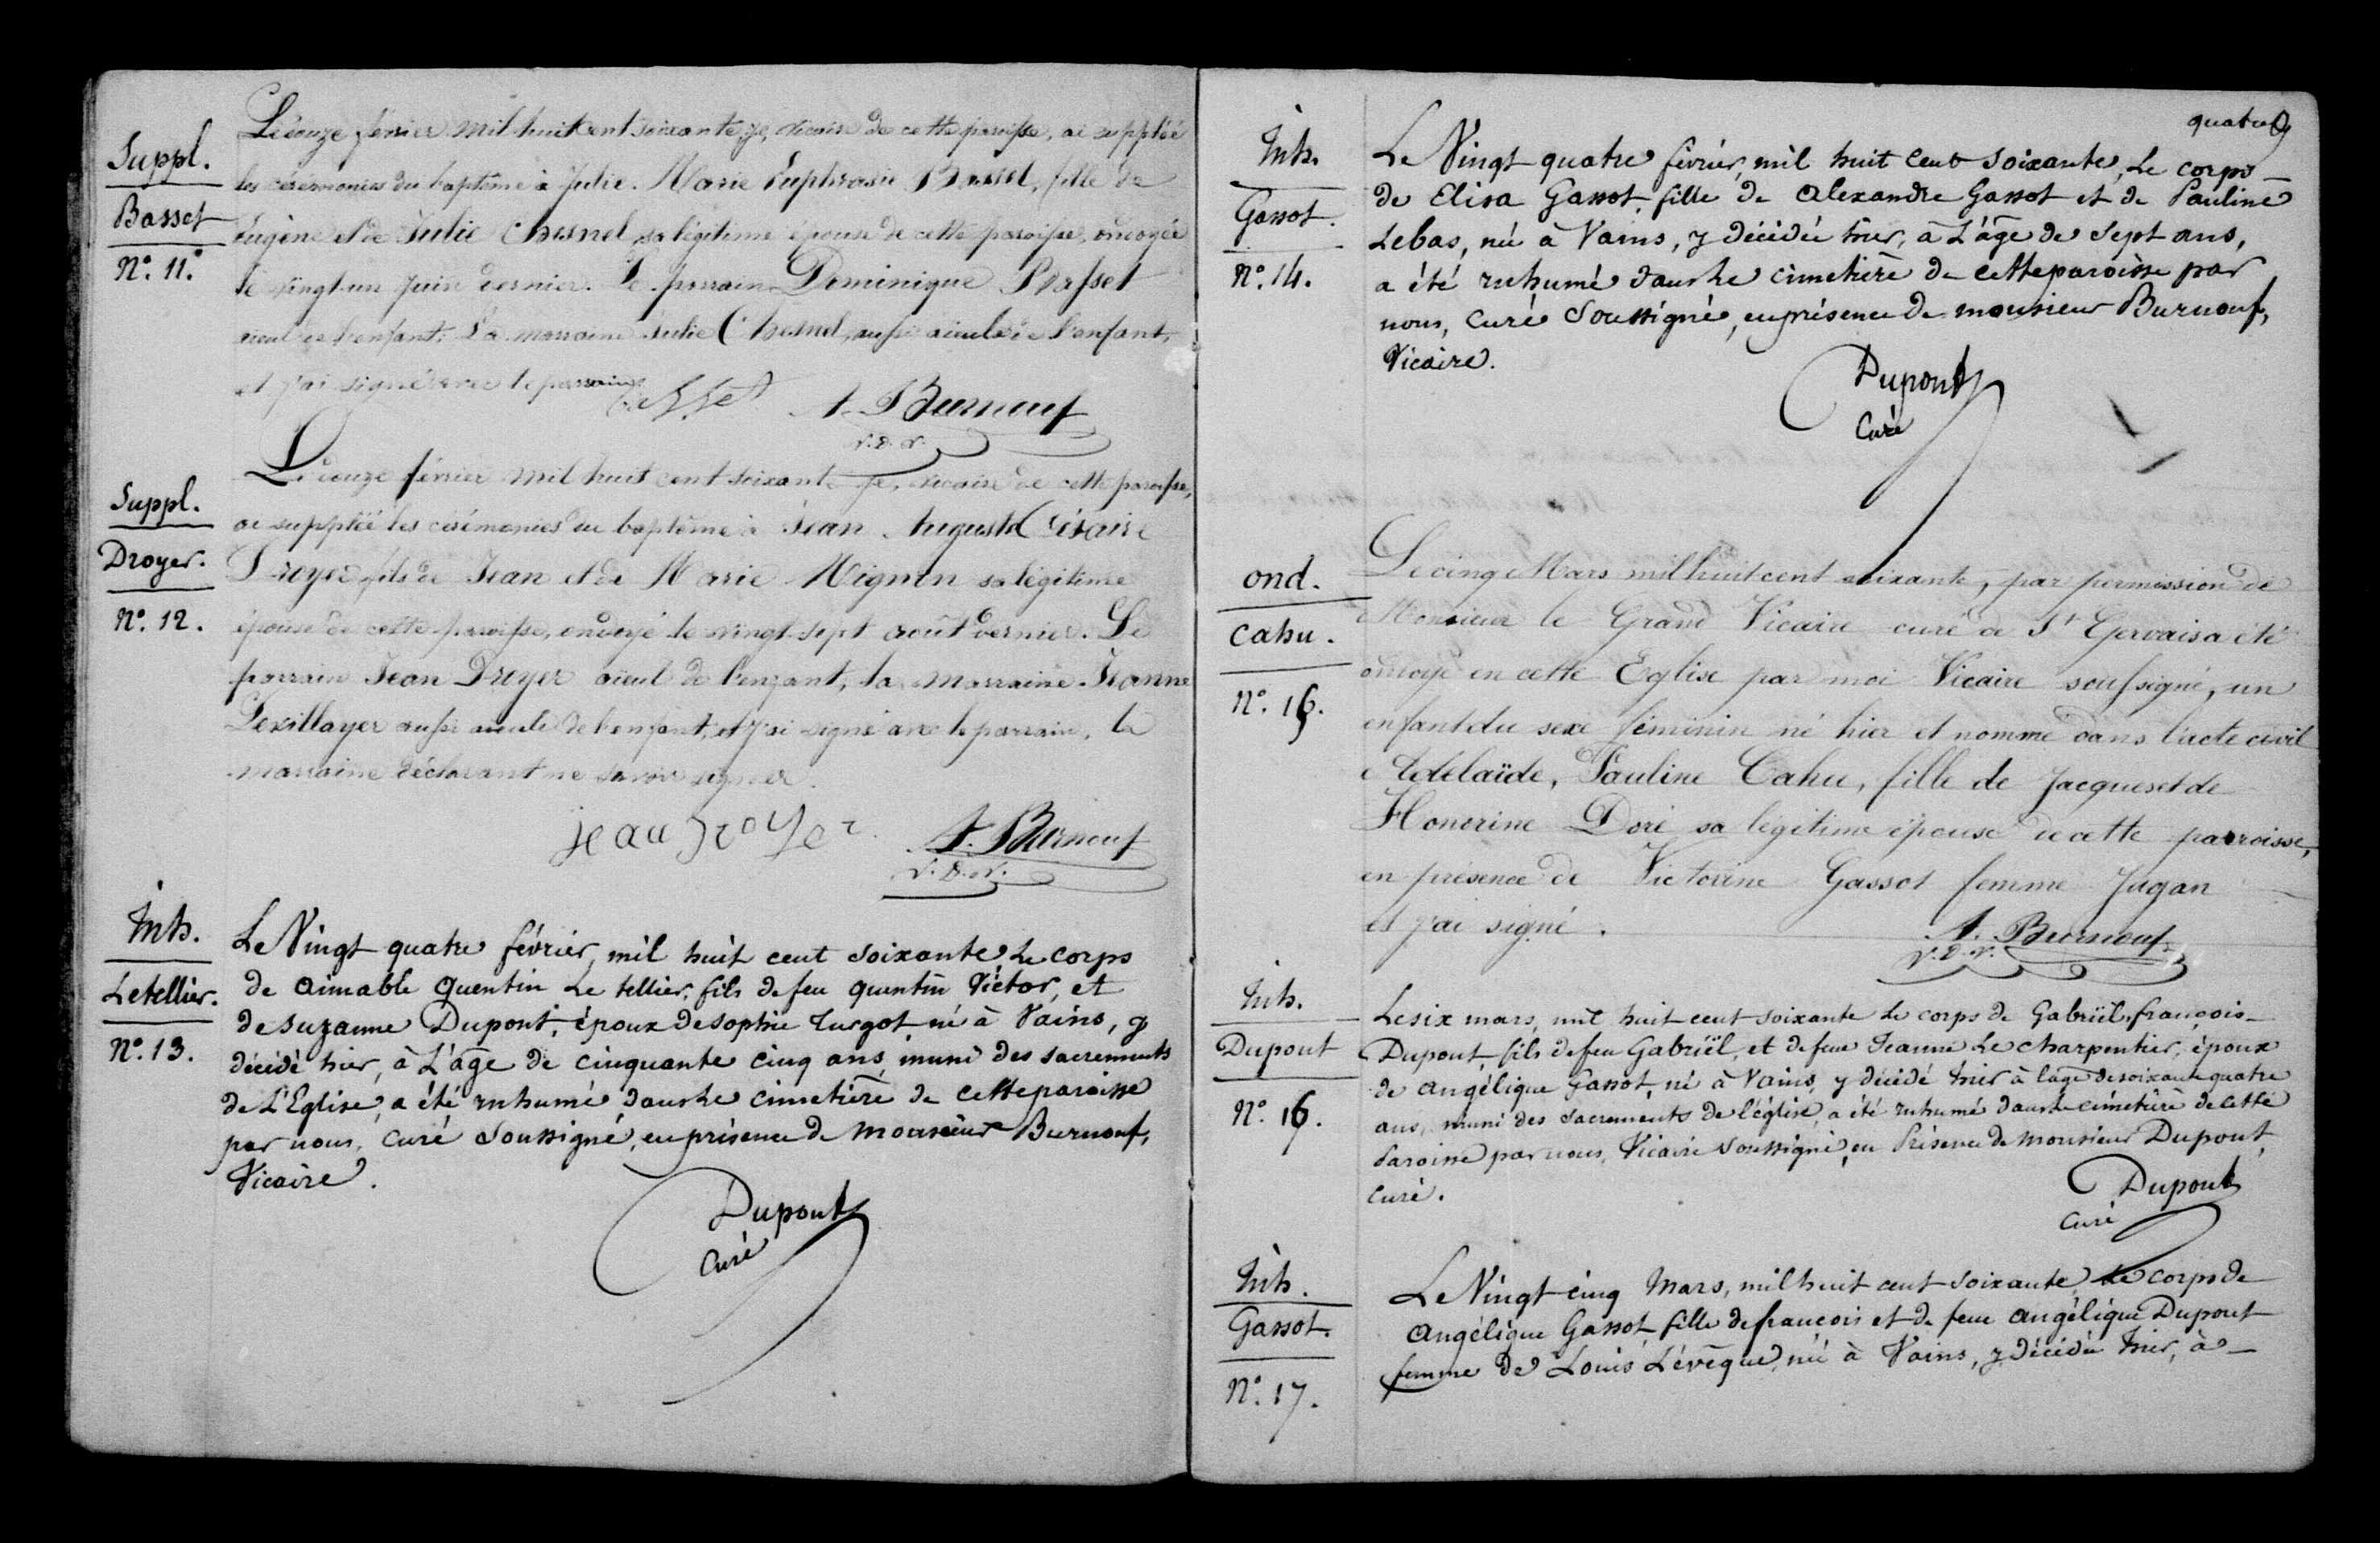 Suppl.
Basset
N°. 11.
Le douze février mil huit cent soixante, je, vicaire de cette paroisse, ai suppléé
les cérémonies du baptême à Julie. Marie Euphrasie Basset, fille de
Eugène et de Julie Chesnel, sa légitime épouse de cette paroisse, ondoyée
le vingt-un juin dernier. Le parrain Dominique Basset
aieul de l'enfant. La marraine Julie Chesnel, aussi aieule de l'enfant,
et j'ai signé avec le parrain.
Basset A. Burnouf
V.D.V.
Suppl.
Droyer.
N°. 12.
Le douze février mil huit cent soixante je, vicaire de cette paroisse,
ai suppléé les cérémonies du baptême à Jean Auguste Césaire
Droyer, fils de Jean et de Marie Mignon sa légitime
épouse de cette paroisse, ondoyé le vingt-sept août dernier. Le
parrain Jean Droyer aïeul de l'enfant, la marraine Jeanne
aussi aieule de l'enfant, et j'ai signé avec le parrain, la
marraine déclarant ne savoir signer.
jean Droyer. A. Burnouf
V.D.V.
Inh.
Letellier.
N°. 13.
Le Vingt quatre février, mil huit cent soixante, Le corps
de aimable quentin Le tellier, fils de feu quentin Victor, et
de suzanne Dupont, époux de sophie Turgot né à Vains, y
décédé hier, à L'âge de cinquante cinq ans, muni des sacrements
de L'Eglise, a été inhumé dans le cimetière de cette paroisse
par nous, curé soussigné, en présence de monsieur Burnouf,
Vicaire.
Dupont
curé
quatre
Inh.
Gassot.
N°. 14.
Le Vingt quatre février, mil huit cent soixante, Le corps
de Elisa Gassot, fille de alexandre Gassot et de Pauline
Lebas, née à Vains, y décédée hier, à L'âge de sept ans,
a été inhumé dans le cimetière de cette paroisse par
nous, curé soussigné, en présence de monsieur Burnouf,
Vicaire.
Dupont
Curé
ond.
Cahu.
N°. 15.
Le cinq Mars mil huit cent soixante, par permission de
Monsieur le Grand Vicaire curé de St Gervais a été
ondoyé en cette Eglise par moi Vicaire soussigné, un
enfant du sexe féminin né hier et nommé dans l'acte civil
Adelaïde, Pauline Cahu, fille de Jacques et de
Honorine Doré sa légitime épouse de cette parroisse,
en présence de Victorine Gassot femme Jugan
et j'ai signé.
A. Burnouf
V.D.V.
Inh.
Dupont
N°. 16.
Le six mars, mil huit cent soixante Le corps de Gabriël, françois
Dupont, fils de feu Gabriël, et de feue Jeanne Le charpentier, époux
de angélique Gassot, né à Vains, y décédé hier à l'âge de soixante quatre
ans, muni des sacrements de l'église, a été inhumé dans le cimetière de cette
Paroisse par nous, Vicaire soussigné, en Présence de monsieur Dupont,
curé.
Dupont
Curé
Inh.
Gassot.
N°. 17.
Le Vingt cinq Mars, mil huit cent soixante, Le corps de
angélique Gassot, fille de françois et de feue angélique Dupont
femme de Louis L'évêque, née à Vains, y décédée hier, à